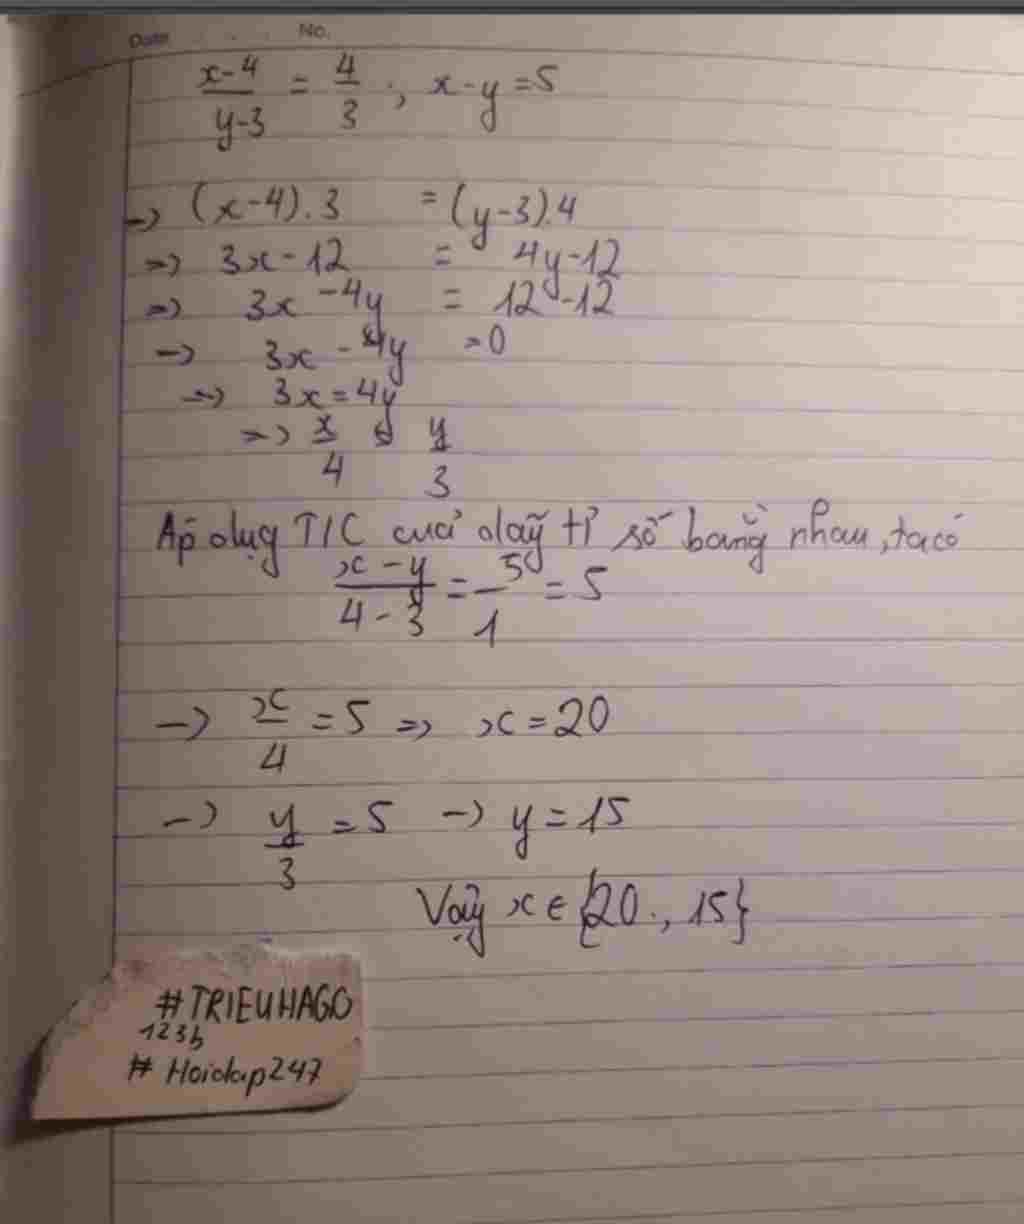 Date No.
x-4/y-3 = 4/3 ; x-y=5
→ (x-4).3 = (y-3).4
⇒ 3x-12 = 4y-12
⇒ 3x-4y = 12-12
→ 3x-4y =0
⇒ 3x=4y
⇒ x/4 = y/3
Áp dụg T/C cuả dãy tỉ số bằng nhau, ta có
x-y/4-3 = 5/1 = 5
→ x/4 = 5 ⇒ x=20
→ y/3 = 5 → y=15
Vậy x ∈ {20., 15}
#TRIEUHAGO
123b
# Hoidap247